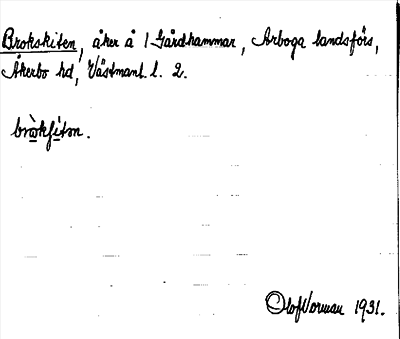 Brokskiten, åker å 1 Gårdhammar, Arboga landsförs,
Åkerbo hd, Västmanl. l. 2.
Olof Norman 1931.